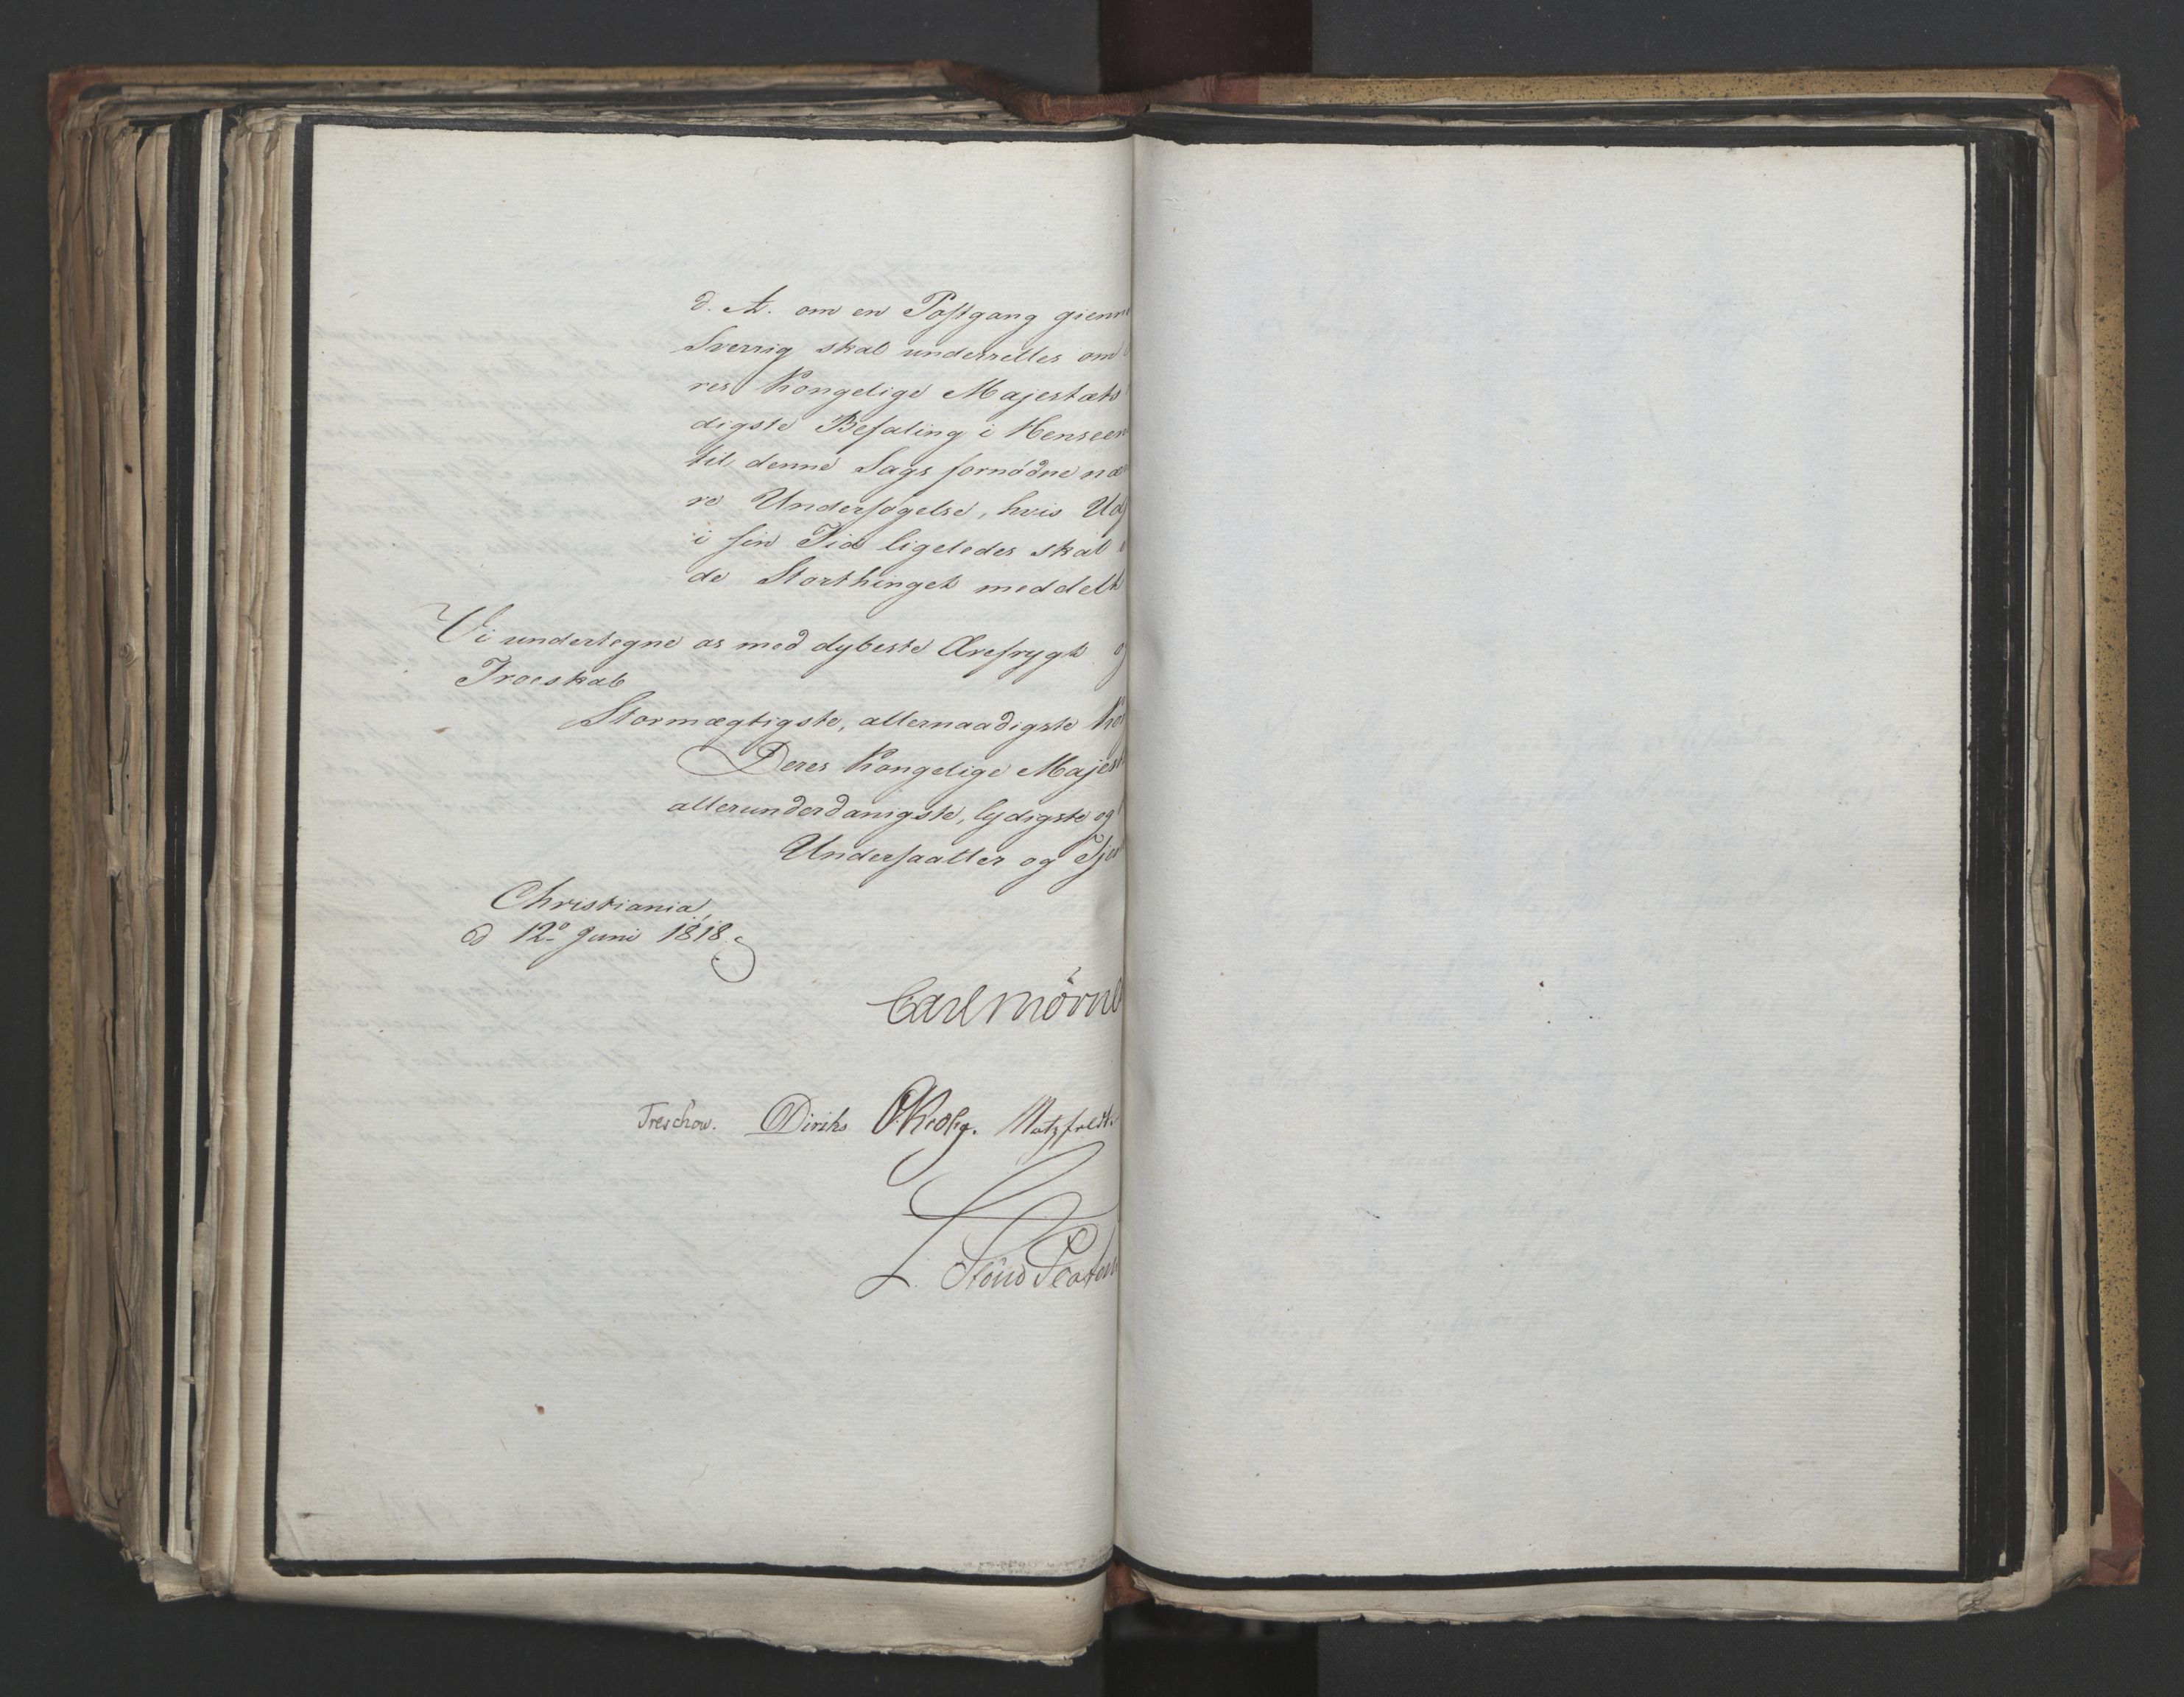 d. A. om en Postgang gienn
Sverrig skal underrettes om
res Kongelige Majestæts
digste Befaling i Henseen
til denne Sags fornødne næ
re Undersøgelse, hvis Ud
i sin Tid ligeledes skal
de Storthinget meddelt
Vi undertegne os med dybeste Ærefrygt og
Troeskab
Stormægtigste, allernaadigste Ko
Deres Kongelige Majest
allerunderdanigste, lydigste og
Undersaatter og Tje
Christiania,
d 12º Juni 1818.
Carl Mörne
Treschow. Diriks Motzfeldt.
L.